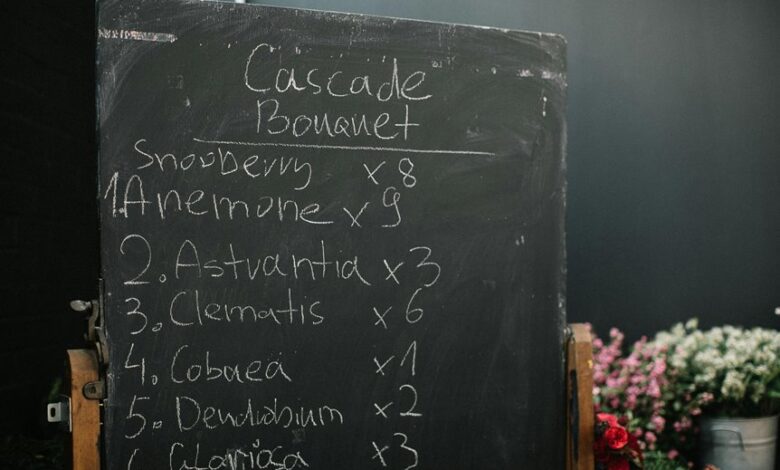 Cascade
Bouquet
Snowberry x 8
1. Anemone x 9
2. Astvantia x 3
3. Clematis x 6
4. Cobuea x 1
5. Dendrobium x 2
Gloriosa x 3